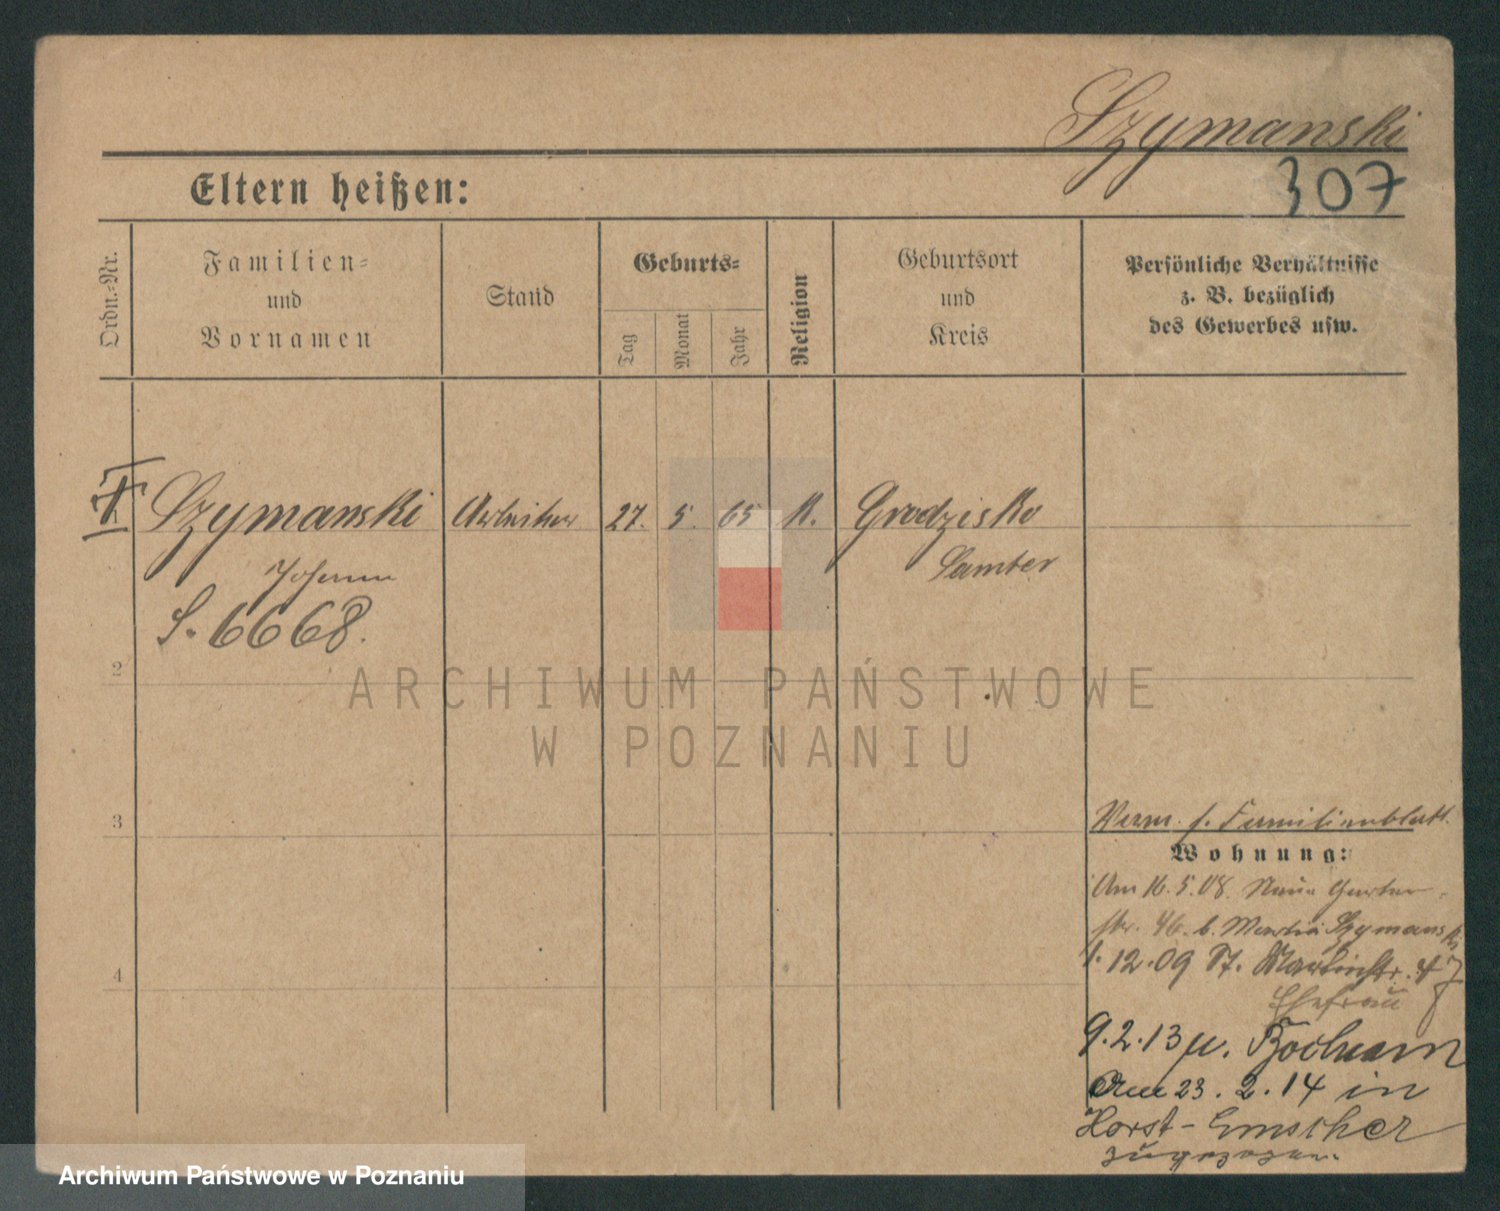 Szymanski
307
Eltern heißen:
Ordn.=Nr.
Familien=
und
Vornamen
Stand
Geburts=
Tag
Monat
Jahr
Religion
Geburtsort
und
Kreis
Persönliche Verhältnisse
z. B. bezüglich
des Gewerbes usw.
1 Szymanski Arbeiter 27. 5. 65 K. Grodzisko
Johann Samter
S. 6668.
2
ARCHIWUM PAŃSTWOWE
W POZNANIU
3
Verm. s. Familienblatt.
Wohnung:
Am 16.5.08. Neue Garten-
str. 46. b. Szymanski
1.12.09 St. Martinstr.
4
Ehefrau
9.2.13 n. Bochum
Am 23.2.14 in
Horst-Emscher
zugezogen.
Archiwum Państwowe w Poznaniu